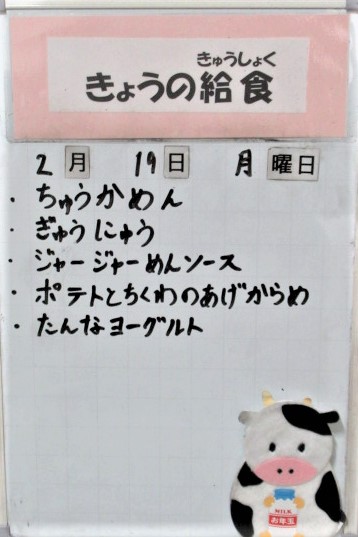 きゅうしょく
きょうの給食
2月 19日 月曜日
・ちゅうかめん
・ぎゅうにゅう
・ジャージャーめんソース
・ポテトとちくわのあげがらめ
・たんなヨーグルト
MILK
お年玉